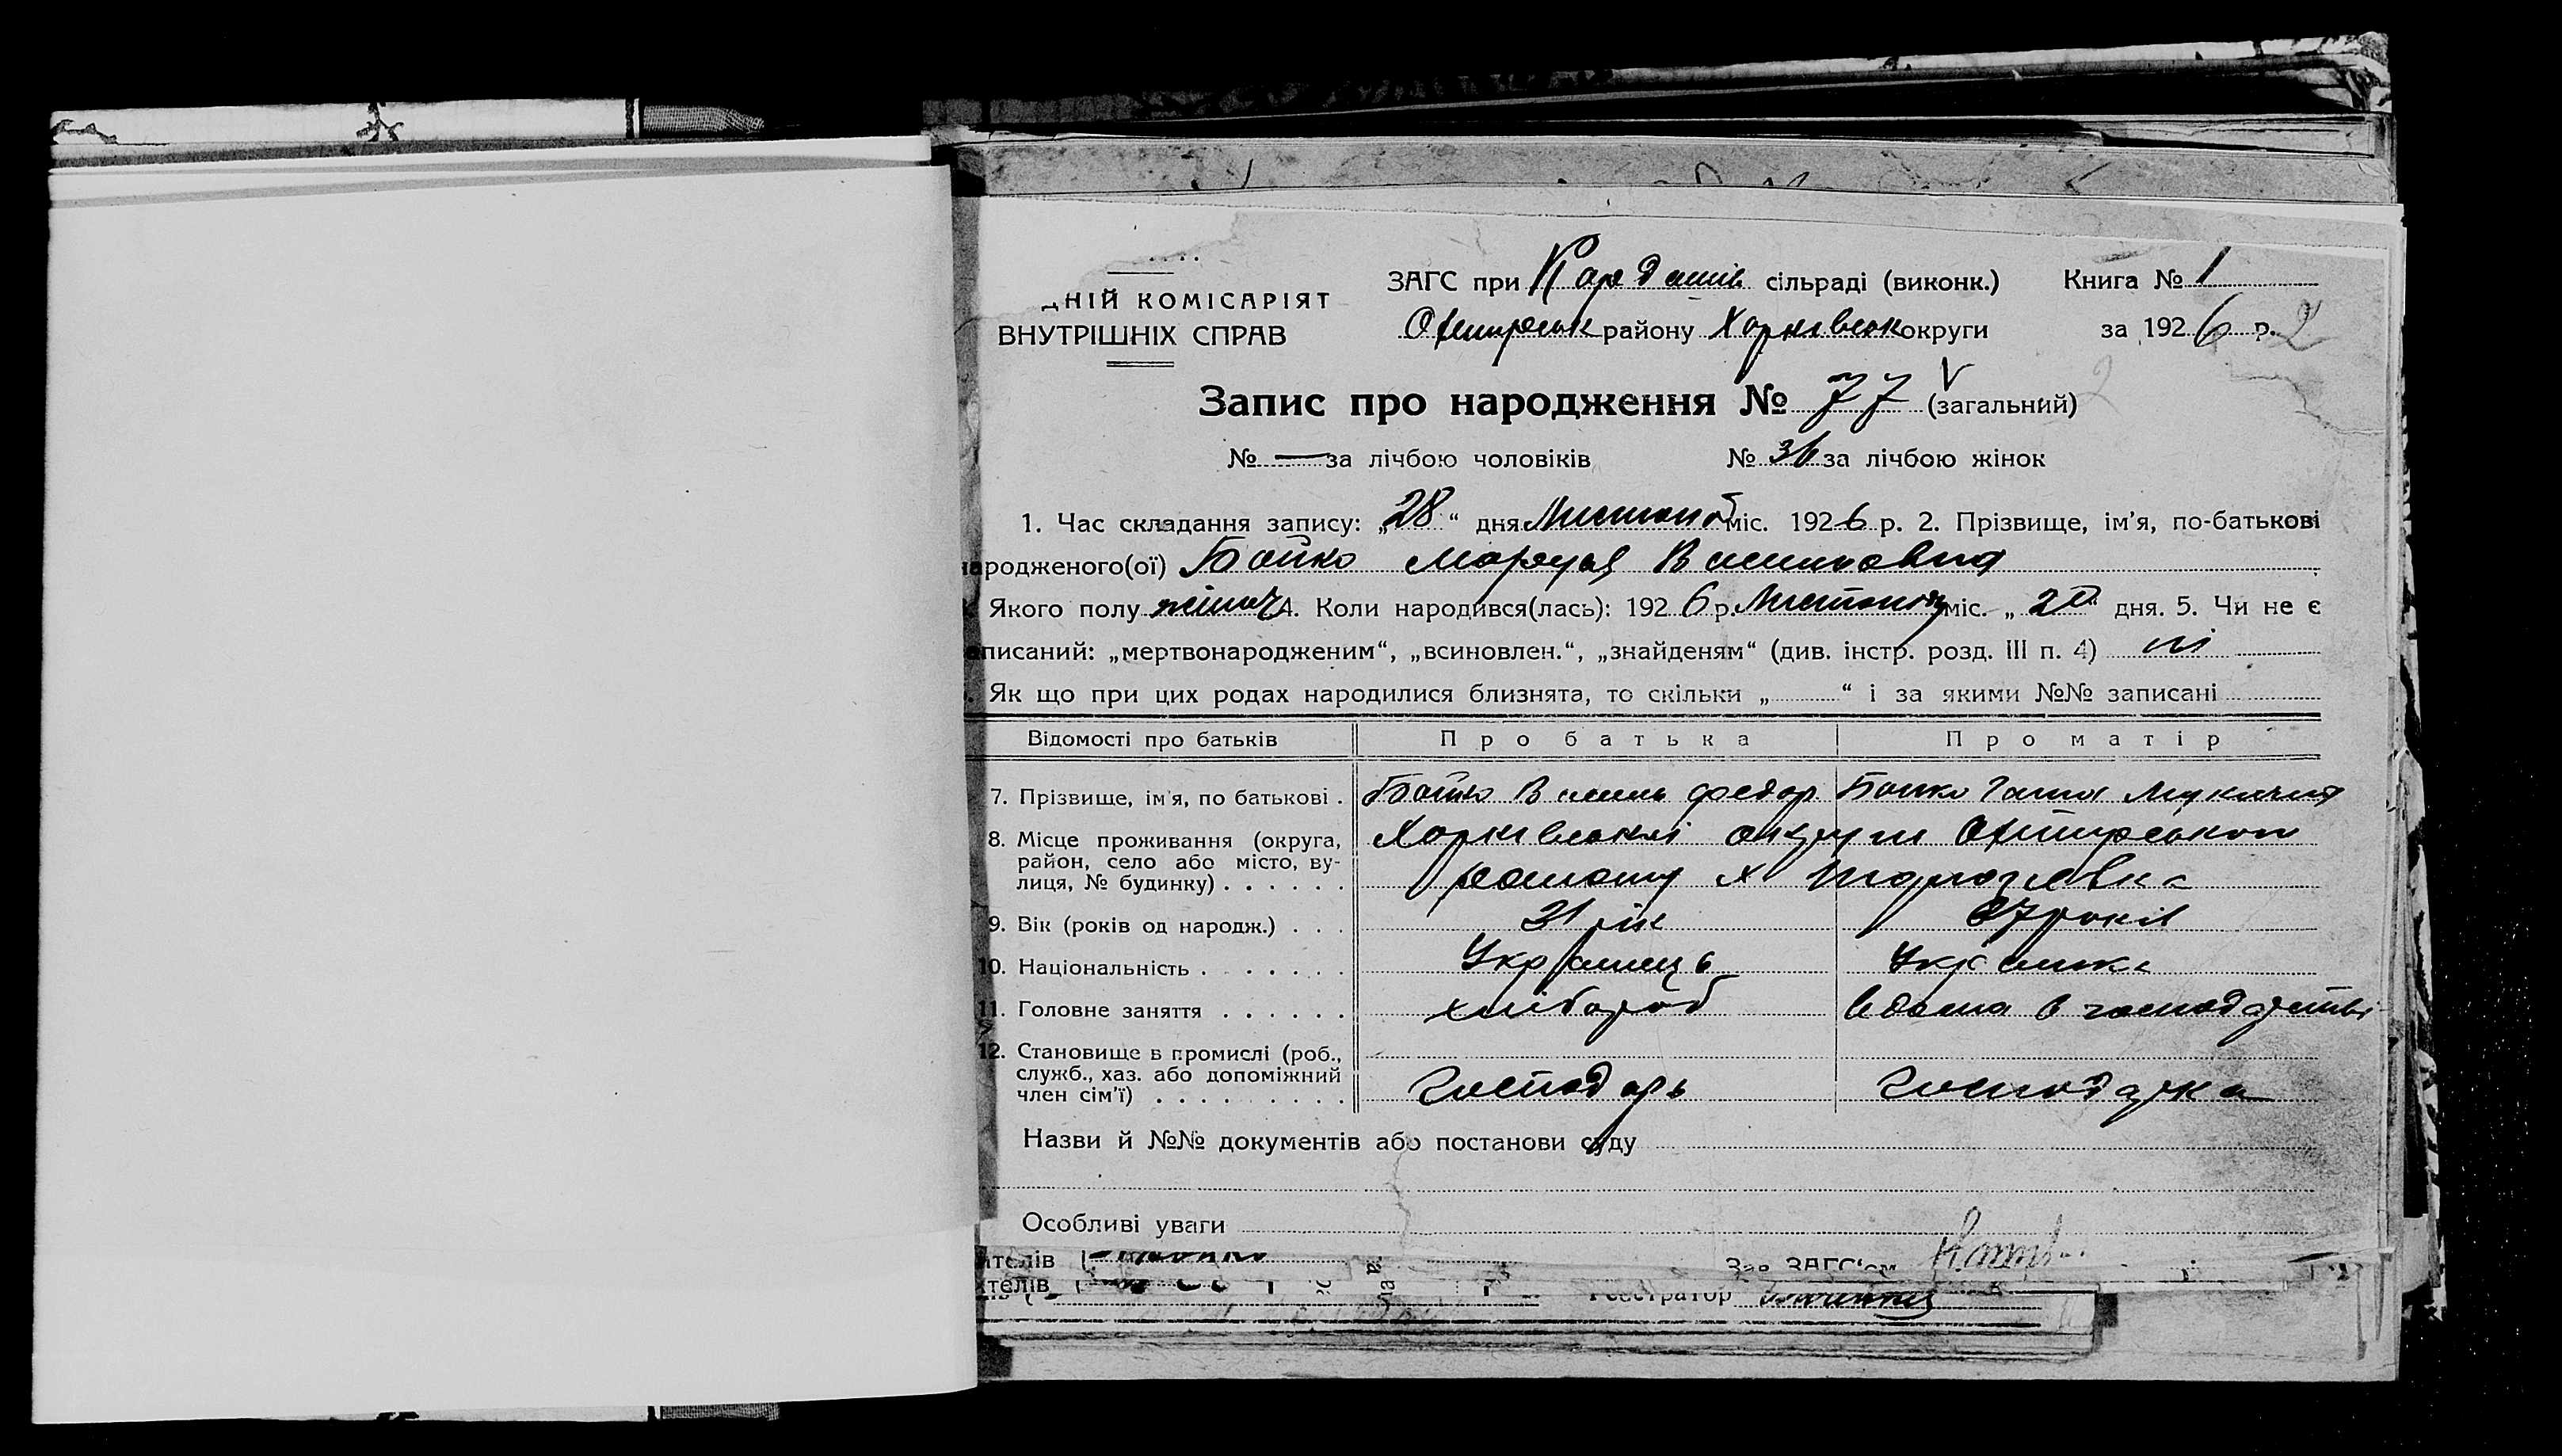 ДНІЙ КОМІСАРІЯТ
ВНУТРІШНІХ СПРАВ
ЗАГС при Кардашів сільраді (виконк.) Книга № 1
Охтирськ району Харківськ округи за 1926 р. 2
Запис про народження № 77 (загальний) 2
№ — за лічбою чоловіків № 36 за лічбою жінок
1. Час складання запису: „28“ дня Листопоб міс. 1926 р. 2. Прізвище, ім'я, по-батькові
народженого(ої) Бойко Маруся Василовна
Якого полу жіноч 4. Коли народився(лась): 1926 р. Листопаду міс. „20“ дня. 5. Чи не є
писаний: „мертвонародженим“, „всиновлен.“, „знайденям“ (див. інстр. розд. III п. 4) ні
Як що при цих родах народилися близнята, то скільки „ “ і за якими №№ записані
Відомості про батьків Про батька Про матір
7. Прізвище, ім'я, по батькові . Бойко Василь Федор Бойко Ганна
8. Місце проживання (округа, Харківської округи Охтирського
район, село або місто, ву-
лиця, № будинку) . . . . . . району х
9. Вік (років од народж.) . . . 31 рік 27 років
10. Національність . . . . . . . Українець Українка
11. Головне заняття . . . . . . хлібороб вдома в господарстві
12. Становище в промислі (роб.,
служб., хаз. або допоміжний
член сім'ї) . . . . . . . . . Господарь Господарка
Назви й №№ документів або постанови суду
Особливі уваги
ителів Зав. ЗАГС'ом
ителів
Реєстратор